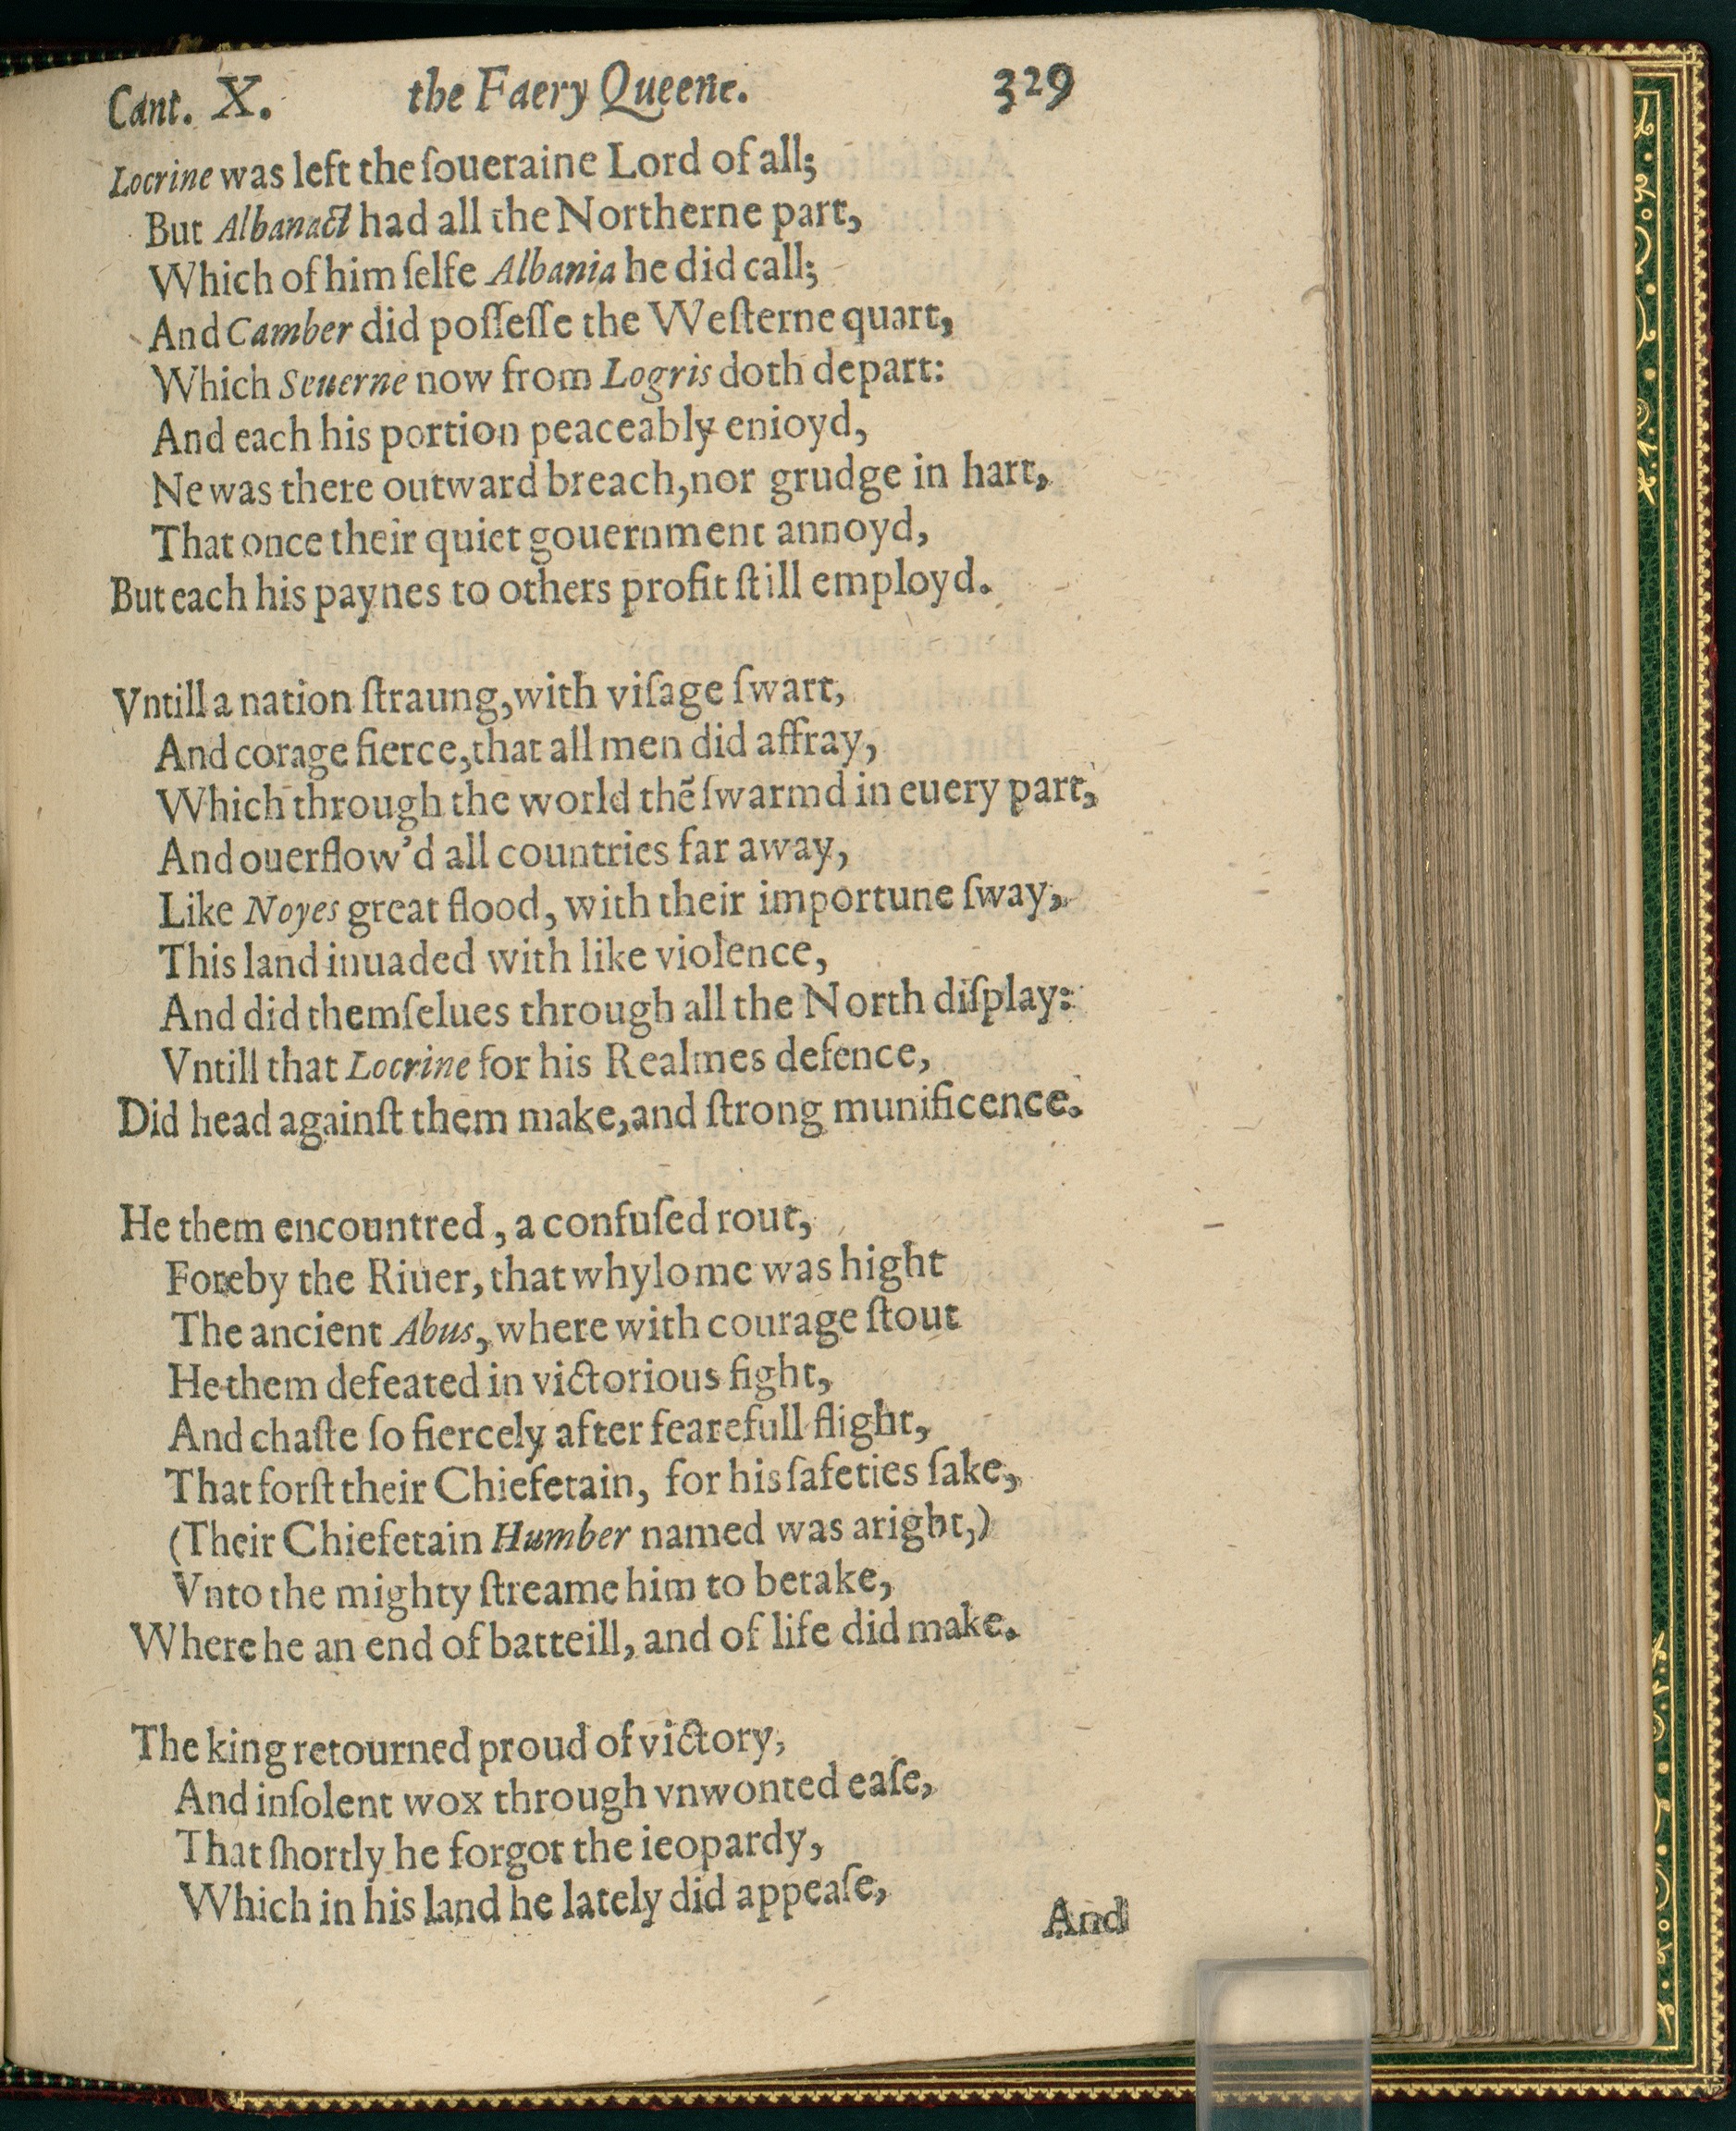 Cant. X. the Faery Queene. 329
Locrine was left the ſoueraine Lord of all;
But Albanact had all the Northerne part,
Which of him ſelfe Albania he did call;
And Camber did poſſeſſe the Weſterne quart,
Which Seuerne now from Logris doth depart:
And each his portion peaceably enioyd,
Ne was there outward breach, nor grudge in hart,
That once their quiet gouernment annoyd,
But each his paynes to others profit ſtill employd.
Vntill a nation ſtraung, with viſage ſwart,
And corage fierce, that all men did affray,
Which through the world thē ſwarmd in euery part,
And ouerflow'd all countries far away,
Like Noyes great flood, with their importune ſway,
This land inuaded with like violence,
And did themſelues through all the North diſplay:
Vntill that Locrine for his Realmes defence,
Did head againſt them make, and ſtrong munificence.
He them encountred, a confuſed rout,
Foreby the Riuer, that whylome was hight
The ancient Abus, where with courage ſtout
He them defeated in victorious fight,
And chaſte ſo fiercely after fearefull flight,
That forſt their Chiefetain, for his ſafeties ſake,
(Their Chiefetain Humber named was aright,)
Vnto the mighty ſtreame him to betake,
Where he an end of batteill, and of life did make.
The king retourned proud of victory,
And inſolent wox through vnwonted eaſe,
That ſhortly he forgot the ieopardy,
Which in his land he lately did appeaſe,
And